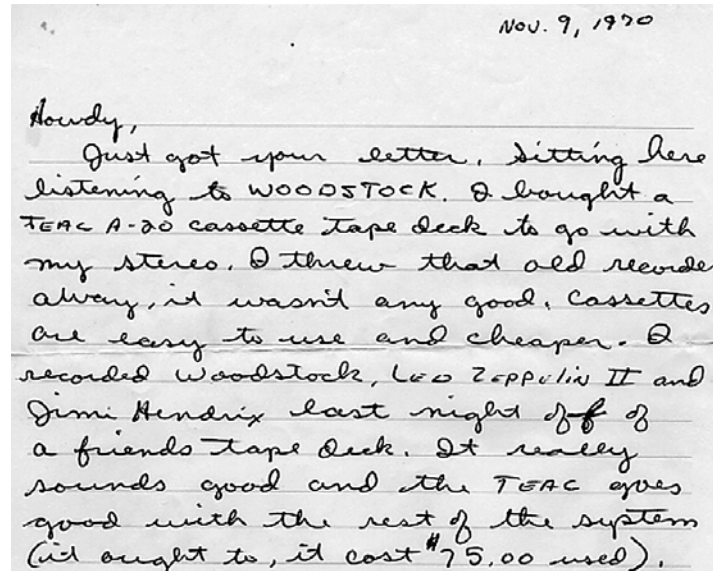 Nov. 9, 1970
Howdy,
Just got your letter. Sitting here
listening to WOODSTOCK. I bought a
TEAC A-20 cassette tape deck to go with
my stereo. I threw that old recorde
away, it wasn't any good. Cassettes
are easy to use and cheaper. I
recorded Woodstock, LED ZEPPELIN II and
Jimi Hendrix last night off of
a friends tape deck. It really
sounds good and the TEAC goes
good with the rest of the system
(it ought to, it cost $75.00 used).